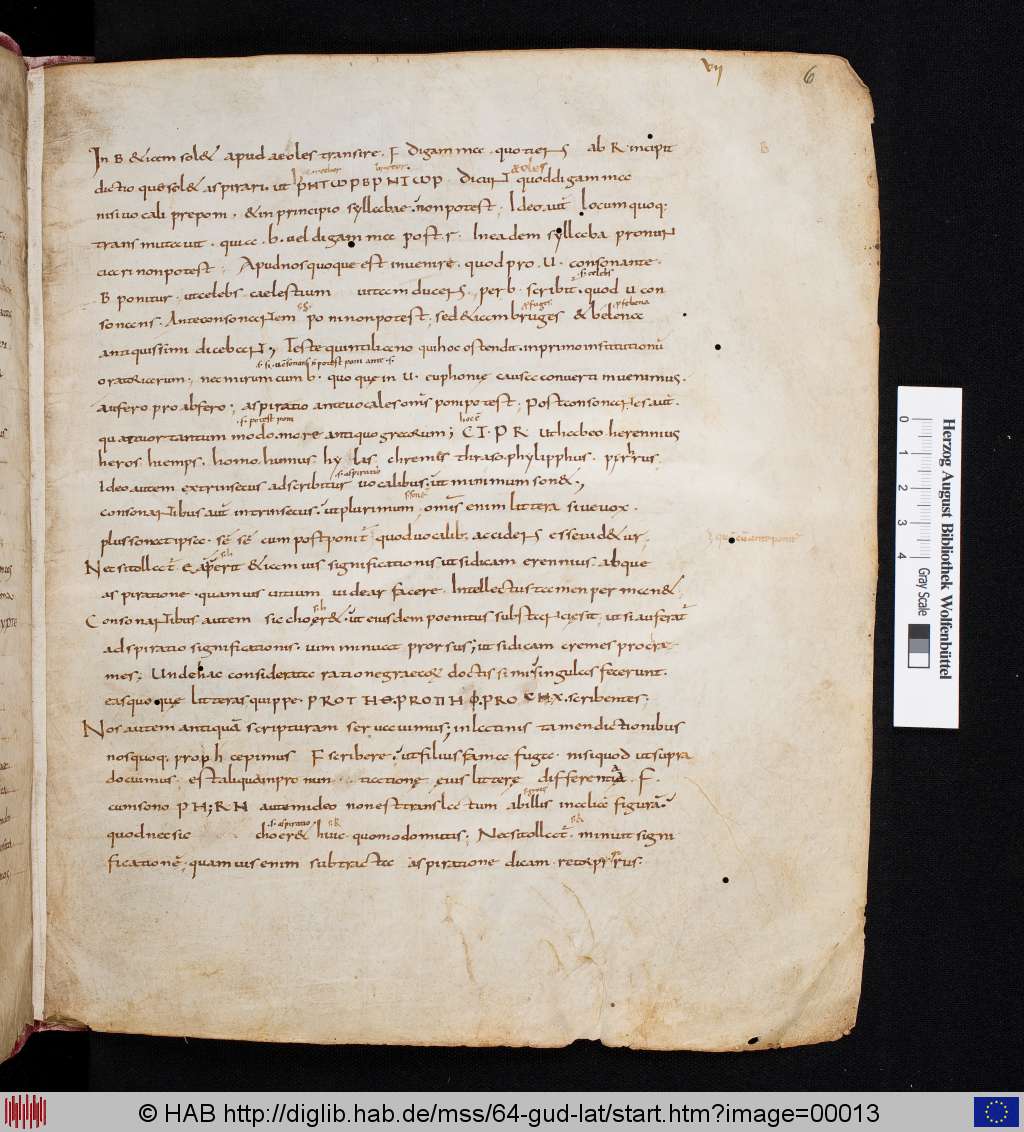 VII 6
In B & iam sol& apud aeoles transire. F digamma. quotiens ab R incipit
dictio que sol& aspirari. ut ΡΗΤΩΡ ΒΡΗΤΩΡ. Dicunt quod digamma
nisi uocali preponi. & in principio syllabae. non potest. Ideo aut locum quoq;
transmutauit. quia. b. uel digamma post r. In eadem syllaba pronun
ciari non potest. Apud nos quoque est inuenire. quod pro .U. consonante.
B ponitur. ut celebs caelestium uitam ducens. per b. scribit. quod u con
sonans. Ante consonantem poni non potest; sed & iam bruges & belena
antiquissimi dicebant; Teste quintiliano qui hoc ostendit. in primo institutionu
oratoriarum; nec mirum cum b. quoque in u. euphonię causa conuerti inuenimus.
aufero pro abfero; aspiratio ante uocales omis poni potest; Post consonantes aut.
quattuor tantum modo. more antiquo grecorum; C T. P R ut habeo herennius
heros. hiemps. homo. humus. hy las chremes thraso. phylipphus. pyrrus.
Ideo autem extrinsecus adscribitur uocalibus; ut minimum son&;
consonantibus aut intrinsecus. ut plurimum. omis enim littera siue uox.
plus sonat ipsa. se se cum postponit quod uocalib; accidens esse uid&ur.
Nec si tollat ea perit & iam uis significationis ut si dicam erennius. absque
aspiratione. quamuis uitium uidear facere. Intellectus tamen perman&
Consonantibus autem sic choer&. ut eiusdem poenitus substantię sit, ut si auferat
adspiratio significationis. uim minuat prorsus; ut si dicam cremes pro chre
mes; Unde hac considerata ratione graecor doctissimi singulas fecerunt.
eas quoque litteras quippe. PRO T H Θ. PRO Π H Φ. PRO C H X. scribentes;
Nos autem antiquā scripturam seruauimus; in latinis tamen dictionibus
nos quoq; pro p. h cepimus F scribere. ut filius fama fuga. nisi quod ut supra
docuimus. est aliquam pro nun tiatione eius litterę differentia. F.
cum sono P H; R H autem ideo non est translatum ab illis in alia figura.
quod nec sic choer& huic quomodo mutis; Nec si tollat. minuit signi
ficatione. quamuis enim subtracta aspiratione dicam. retor pirrus.
Herzog August Bibliothek Wolfenbüttel
Gray Scale
0 1 2 3 4
© HAB http://diglib.hab.de/mss/64-gud-lat/start.htm?image=00013